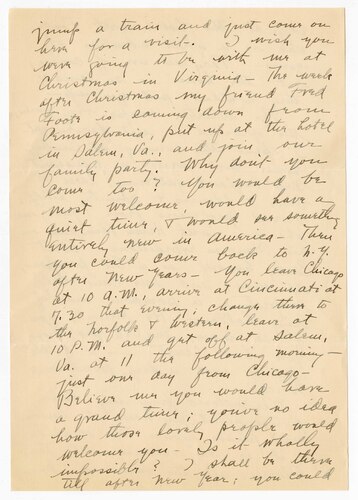 jump a train and just come on
here for a visit. I wish you
were going to be with me at
Christmas in Virginia - The week
after Christmas my friend Fred
Foote is coming down from
Pennsylvania, put up at the hotel
in Salem, Va., and join our
family party. Why don't you
come too? You would be
most welcome, would have a
quiet time, & would see something
entirely new in America - Then
you could come back to N.Y.
after New Years - You leave Chicago
at 10 A.M., arrive at Cincinnati at
7.30 that evening, change there to
the Norfolk & Western, leave at
10 P.M. and get off at Salem,
Va. at 11 the following morning -
just one day from Chicago -
Believe me you would have
a grand time; you've no idea
how those lovely people would
welcome you - Is it wholly
impossible? I shall be there
till after New Year; you could